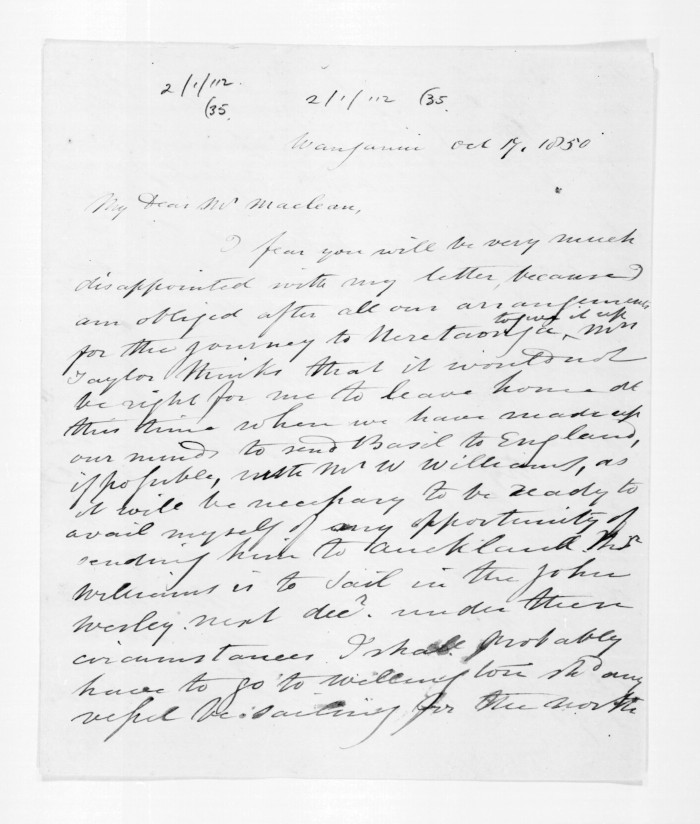 2/1/112.
(35.
2/1/112 (35.
Wanganui Oct 17, 1850
My Dear Mr Maclean,
I fear you will be very much
disappointed with my letter, because I
am obliged after all our arrangements
to give it up
for the journey to Heretaonga, Mrs
Taylor thinks that it would not
be right for me to leave home at
this time when we have made up
our minds to send Basil to England,
if possible, with Mr W Williams, as
it will be necessary to be ready to
avail myself of any opportunity of
sending him to Auckland.
Williams is to sail in the John
Wesley next Decr. under these
circumstances I shall probably
have to go to Wellington shd any
vessel be sailing for the north